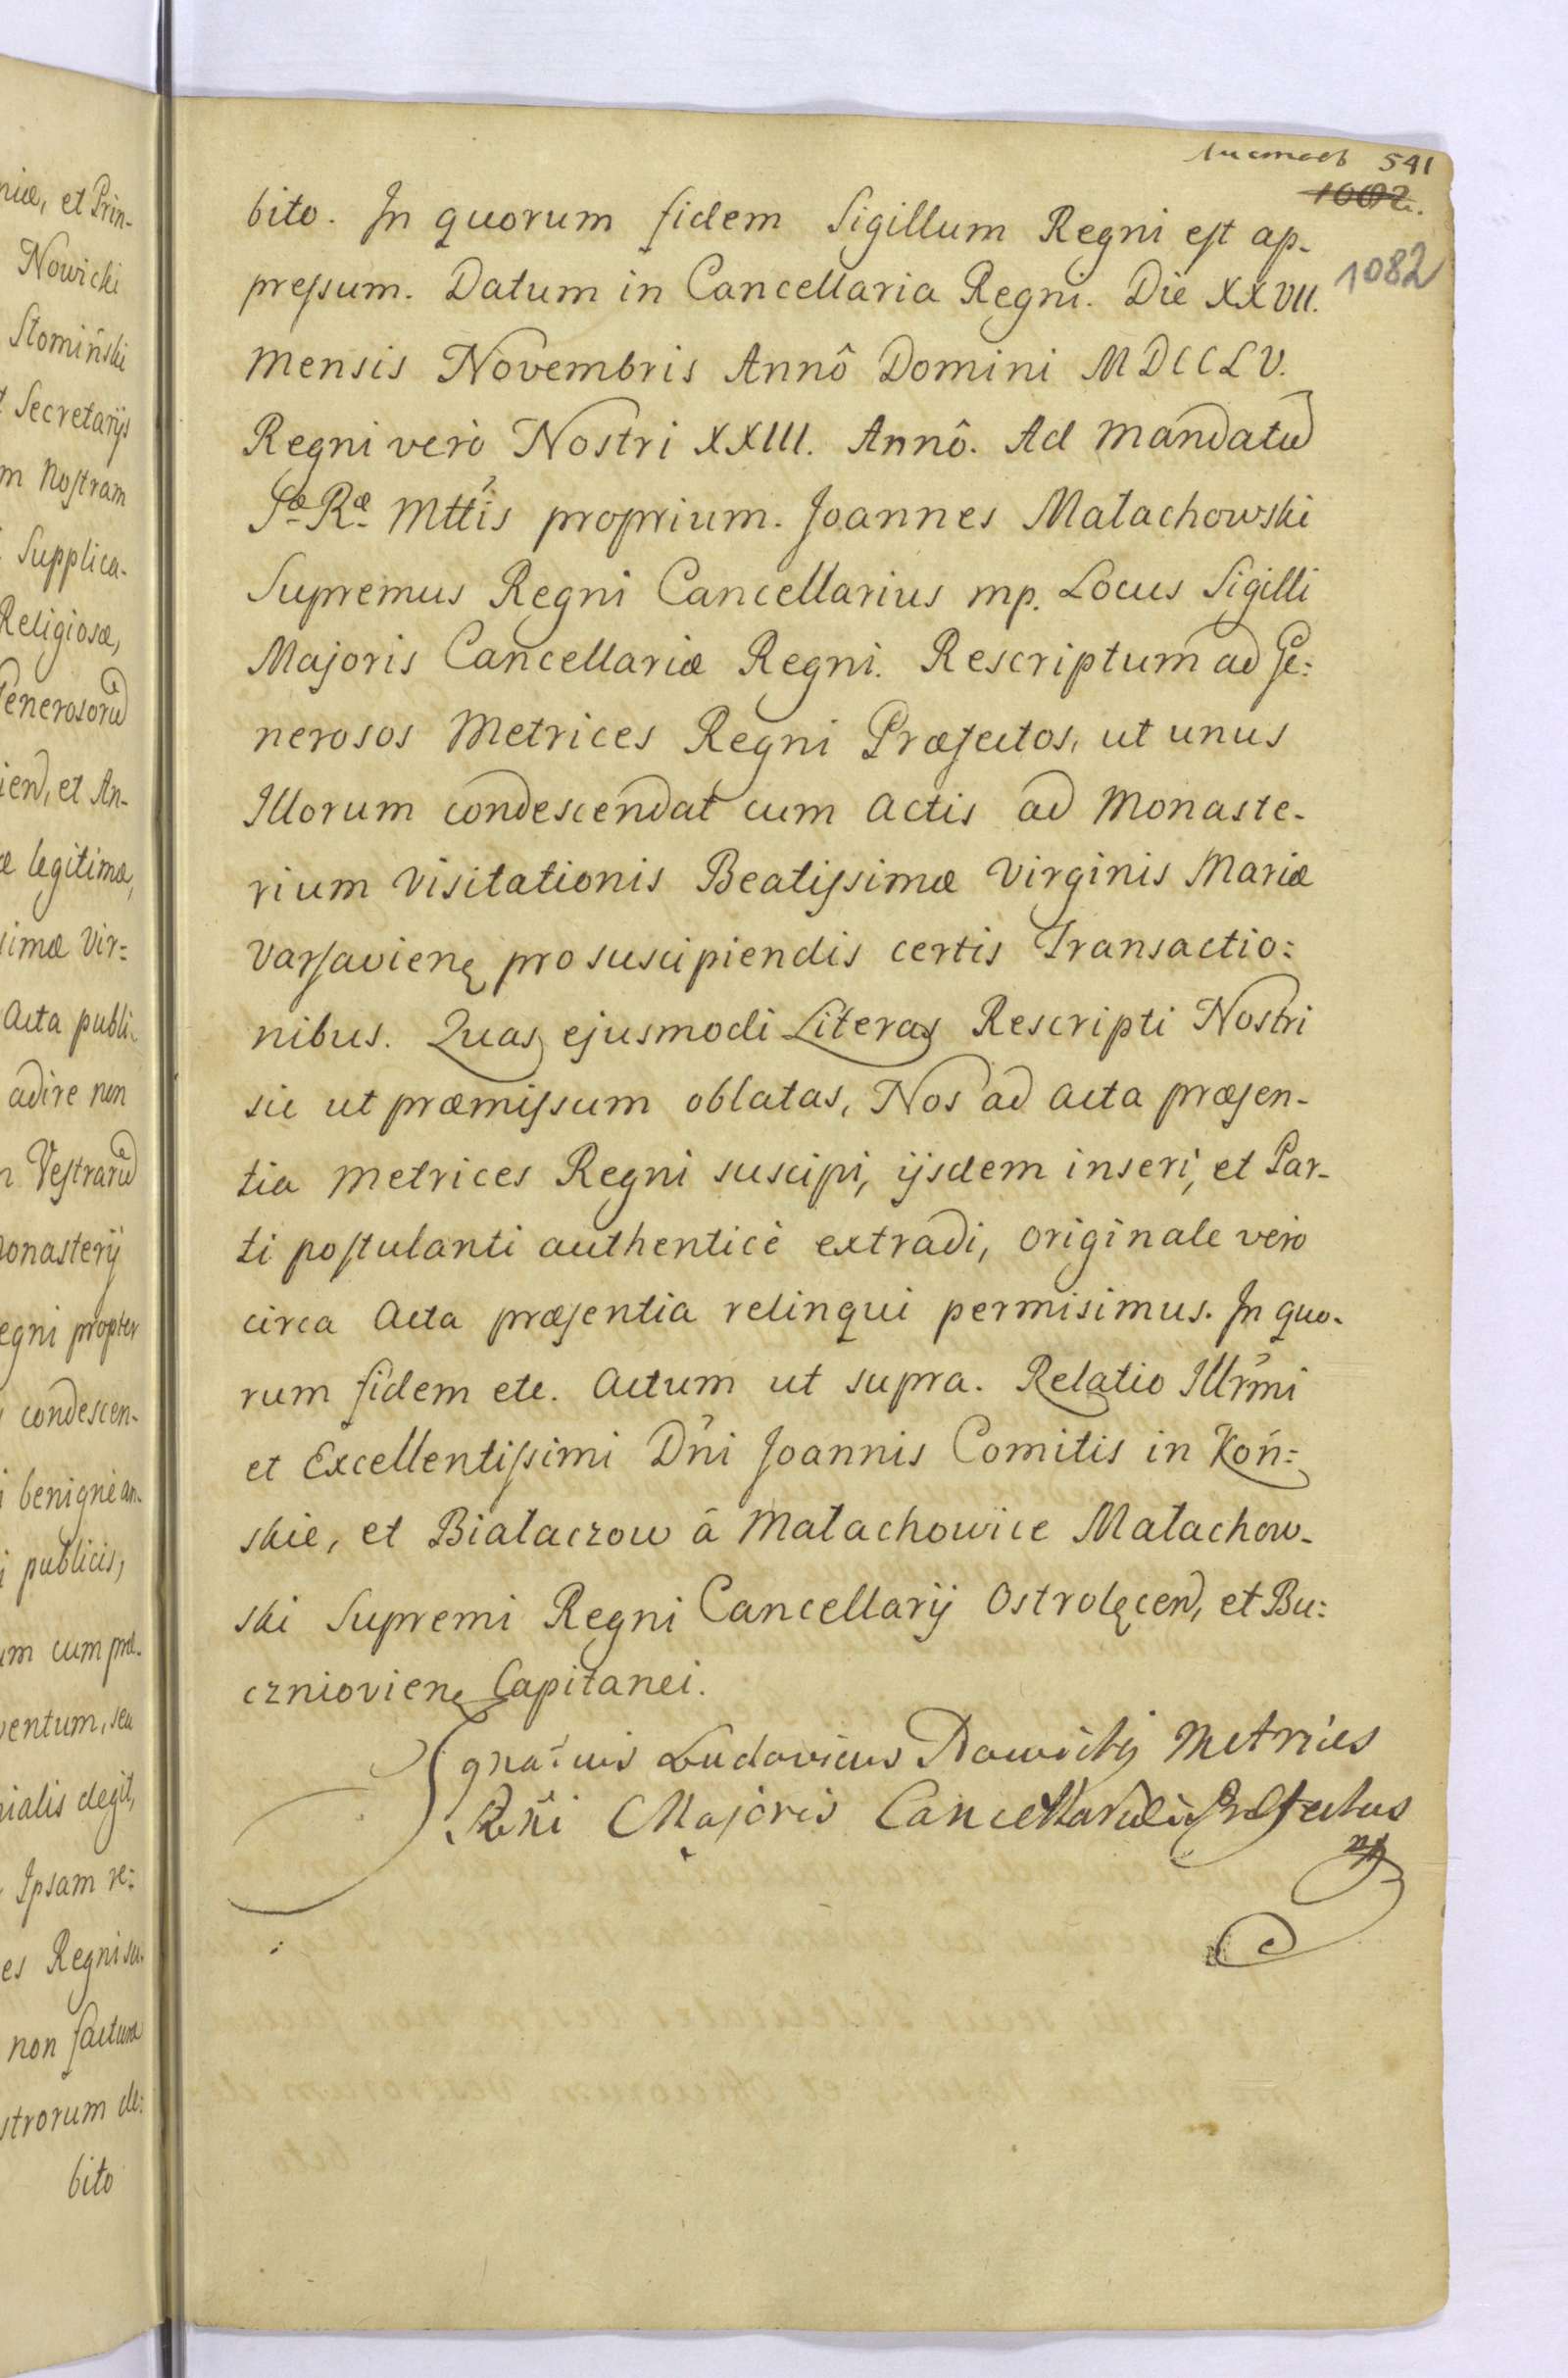 niæ, et Prin-
Nowicki
Słomiński
Secretarijs
m Nostram
Supplica-
Religiosæ,
enerosorũ
iend, et An-
æ legitimæ,
simæ Vir=
Acta publi-
adire non
Vestrarũ
onasterij
egni propter
condescen-
i benignè an-
i publicis,
um cum præ-
ventum, seu
nialis degit,
Ipsam re=
es Regni su-
non factura
strorum de=
bito
541
1082.
1082
bito. In quorum fidem Sigillum Regni est ap-
pressum. Datum in Cancellaria Regni. Die XXVII.
Mensis Novembris Annô Domini MDCCLV.
Regni verò Nostri XXIII. Annô. Ad Mandatũ
Sæ Ræ Mttis proprium. Joannes Małachowski
Supremus Regni Cancellarius mp. Locus Sigilli
Majoris Cancellariæ Regni. Rescriptum ad Ge=
nerosos Metrices Regni Præfectos, ut unus
Illorum condescendat cum Actis ad Monaste-
rium Visitationis Beatissimæ Virginis Mariæ
Varsavienę pro suscipiendis certis Transactio=
nibus. Quas ejusmodi Literas Rescripti Nostri
sic ut præmissum oblatas, Nos ad Acta præsen-
tia Metrices Regni suscipi, ijsdem inseri, et Par-
ti postulanti authenticè extradi, Originale vero
circa Acta præsentia relinqui permisimus. In quo-
rum fidem etc. Actum ut supra. Relatio Illrm̃i
et Excellentissimi Dñi Joannis Comitis in Koń=
skie, et Białaczow â Małachowice Małachow-
ski Supremi Regni Cancellarij Ostrołęcend, et Bu=
cznioviene Capitanei.
Ignatius Ludovicus Nowicki Metrices
Rñi Majoris Cancellariæ Præfectus
mp